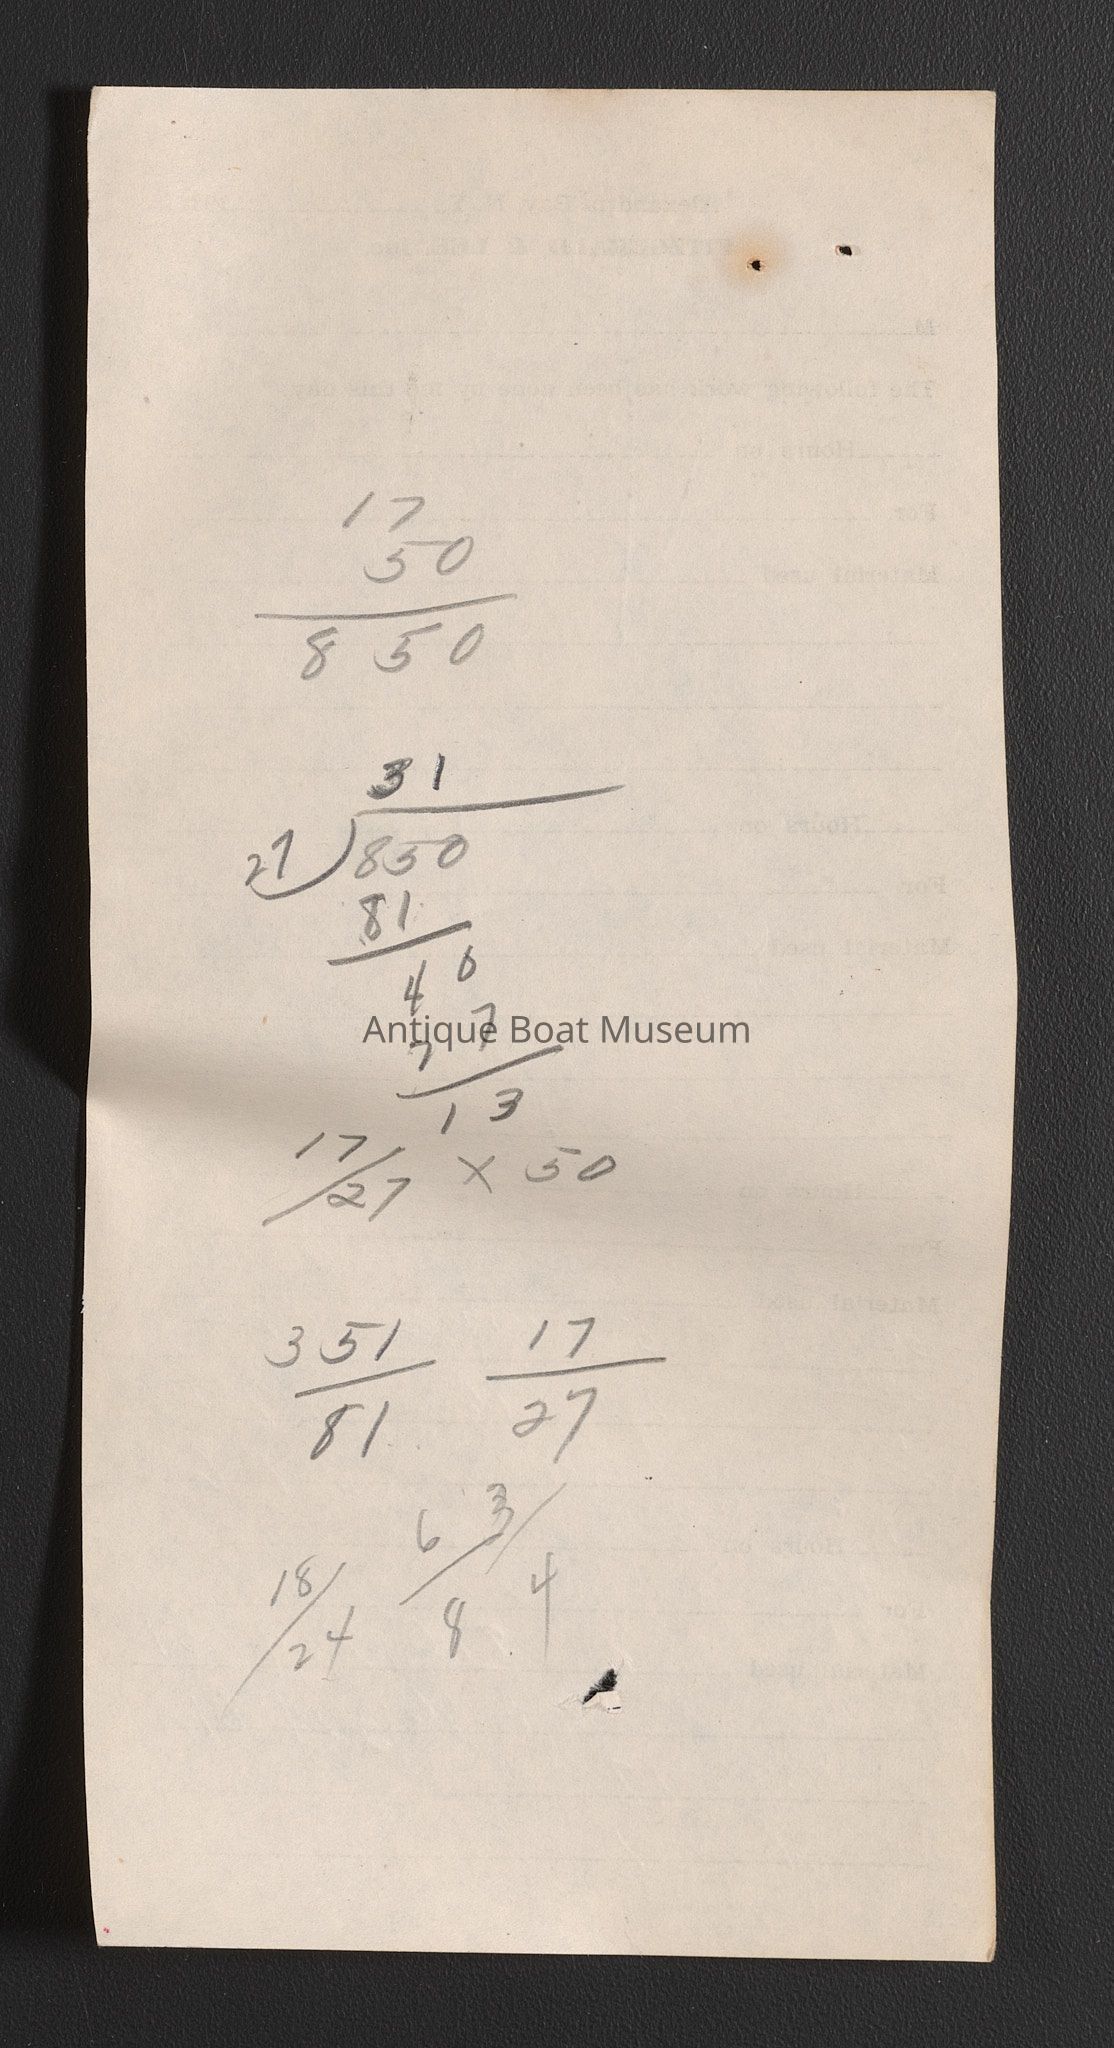 17
50
8 50
31
27 ) 850
81
4 0
2 7
1 3
17/27 × 50
351 17
81 27
6 3/
18/ 8 4
24
Antique Boat Museum